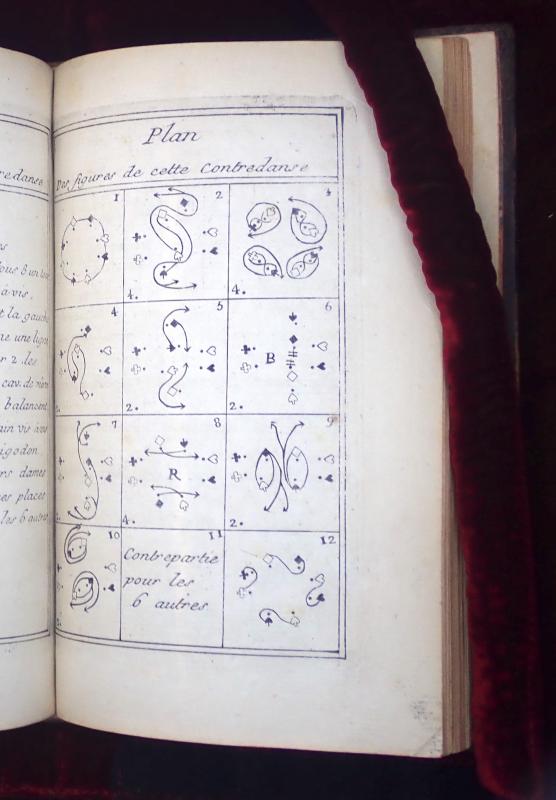 Plan
Des figures de cette Contredanse
1
2
4.
4
4.
4
5
2.
6
B
2.
7
8
R
4.
9
2.
10
11
Contrepartie
pour les
6 autres
12
redanse
à vis,
t la gauche
ne une ligne
r 2. les
cav. de même
balancent
ain vis à vis
igodon
rs dames
es places
les 6 autres